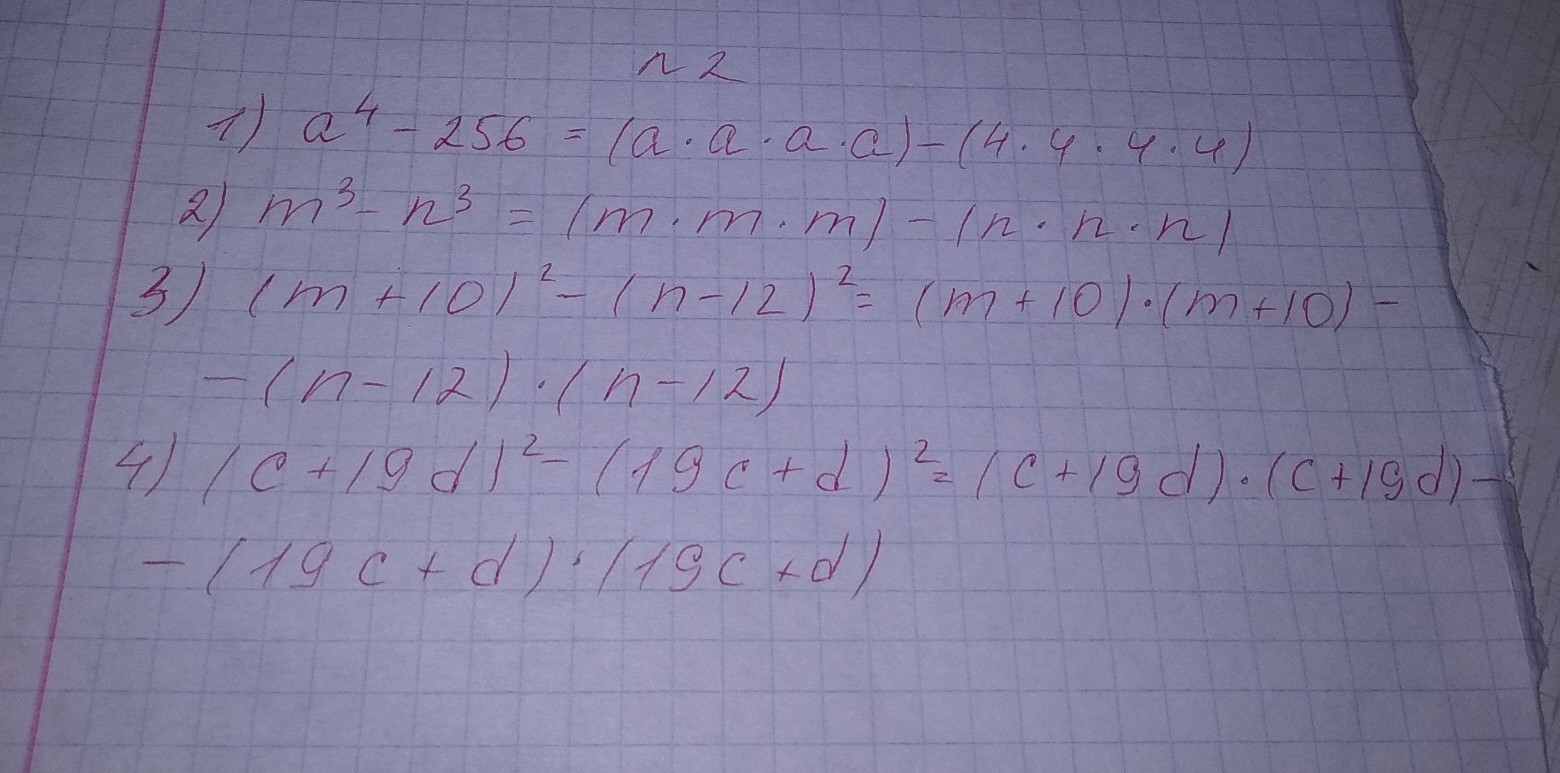 n 2
1) a⁴ - 256 = (a · a · a · a) - (4 · 4 · 4 · 4)
2) m³ - n³ = (m · m · m) - (n · n · n)
3) (m + 10)² - (n - 12)² = (m + 10) · (m + 10) -
- (n - 12) · (n - 12)
4) (c + 19d)² - (19c + d)² = (c + 19d) · (c + 19d) -
- (19c + d) · (19c + d)